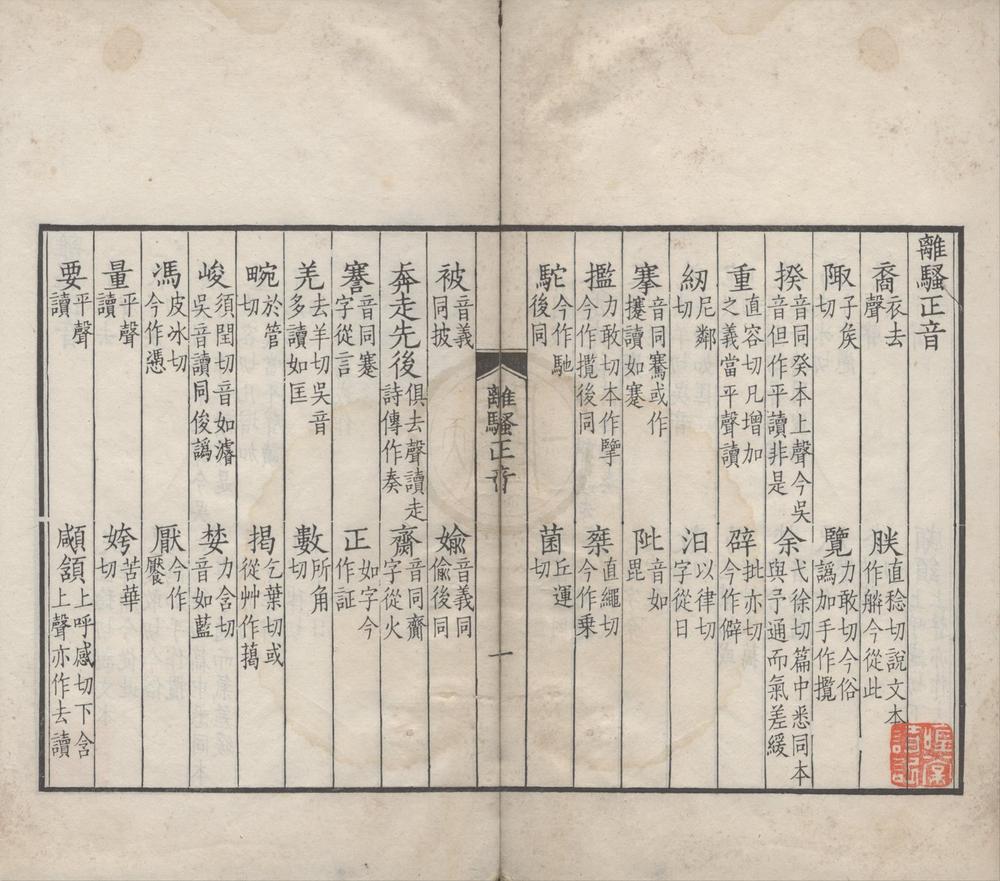 離騷正音
裔衣去聲 朕直稔切說文本作䑣今從此
陬子侯切 覽力敢切今俗譌加手作攬
揆音同癸本上聲今吳音但作平讀非是 余弋徐切篇中悉同本與予通而氣差緩
重直容切凡增加之義當平聲讀 辟批亦切今作僻
紉尼鄰切 汩以律切字從日
搴音同騫或作攓讀如蹇 阰音如毘
擥力敢切本作擥今作攬後同 椉直繩切今作乗
駝今作馳後同 菌丘運切
離騷正音 一
被音義同披 媮音義同偷後同
奔走先後俱去聲讀走詩傳作奏 齌音同齋字從火
謇音同蹇字從言 正如字今作証
羌去羊切吳音多讀如匡 數所角切
畹於管切 揭乞葉切或從艸作藒
峻須閏切音如濬吳音讀同俊譌 婪力含切音如藍
馮皮冰切今作憑 厭今作饜
量平聲讀 姱苦華切
要平聲讀 顑頷上呼感切下含上聲亦作去讀